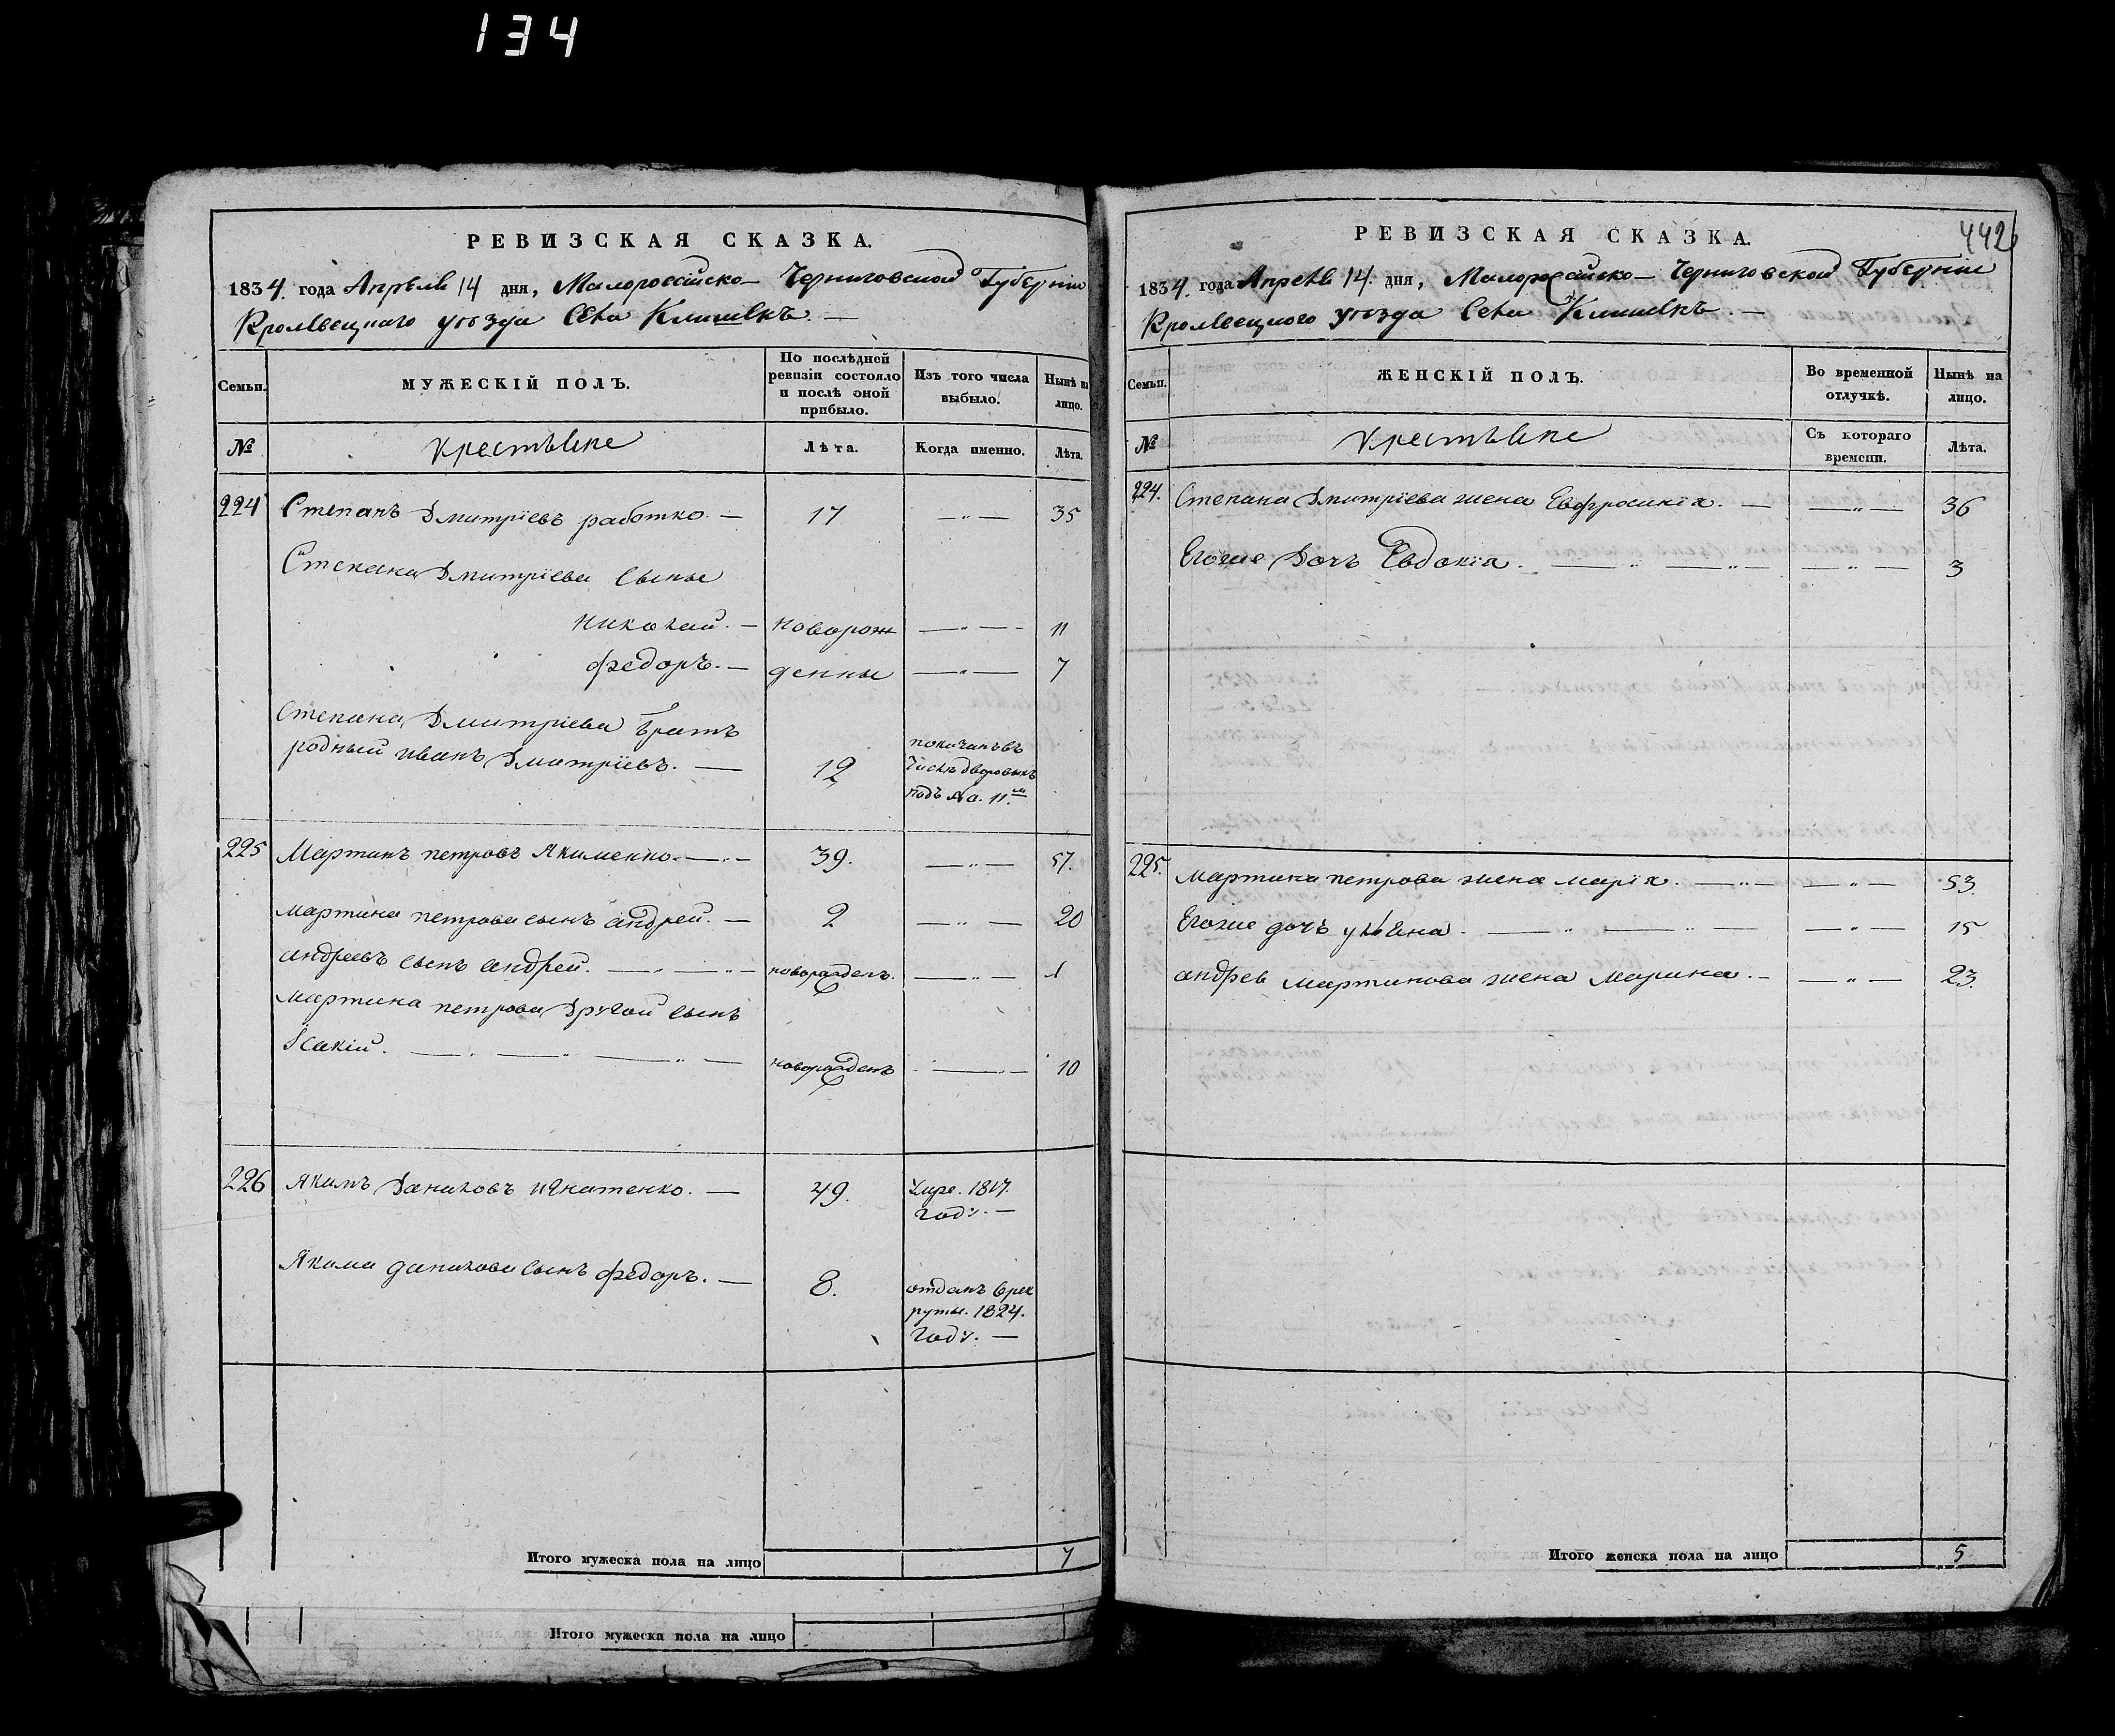 134
РЕВИЗСКАЯ СКАЗКА.
1834. года Апреля 14 дня, Малороссийско- Черниговской Губернии
Кролевецкаго уезда Села Клишекъ. —
Семьи. МУЖЕСКІЙ ПОЛЪ. По послѣдней ревизіи состояло и послѣ оной прибыло. Изъ того числа выбыло. Нынѣ на лицо.
№ крестьяне Лѣта. Когда именно. Лѣта.
224 Степанъ Дмитріевъ работко. — 17 —„— 35
Степана Дмитріева сынье
николай. — новорож —„— 11
федоръ. — денные —„— 7
Степана Дмитріева братъ
родный иванъ Дмитріевъ. — 12 показанъ въ
числе дворовыхъ
подъ No. 11м
225 Мартинъ петровъ Якименко. —„— 39. —„— 57.
мартина петрова сынъ андрей. — 2 —„— 20
андреевъ сынъ андрей. —„— новорожденъ. —„— 1
мартина петрова другой сынъ
Ісакій. —„— новорожденъ —„— 10
226 Якимъ Даниловъ игнатенко. — 49. Умре. 1817.
году. —
Якима данилова сынъ федоръ. — 8. отданъ врек
руты. 1824.
году. —
Итого мужеска пола на лицо 7
Итого мужеска пола на лицо
442
РЕВИЗСКАЯ СКАЗКА.
1834. года Апреля 14. дня, Малороссийско- Черниговской Губернии
Кролевецкого уезда Села Клишекъ. —
Семьи. ЖЕНСКІЙ ПОЛЪ. Во временной отлучкѣ. Нынѣ на лицо.
№ крестьяне Съ котораго времени. Лѣта.
224. Степана Дмитріева жена Евфросинія. — —„— 36
Егоже Дочь Евдокія. —„— —„— 3
225. мартина петрова жена марія. —„— —„— 53
Егоже дочь улияна. —„— —„— 15
андрея мартинова жена Марина. — —„— 23.
Итого женска пола на лицо 5